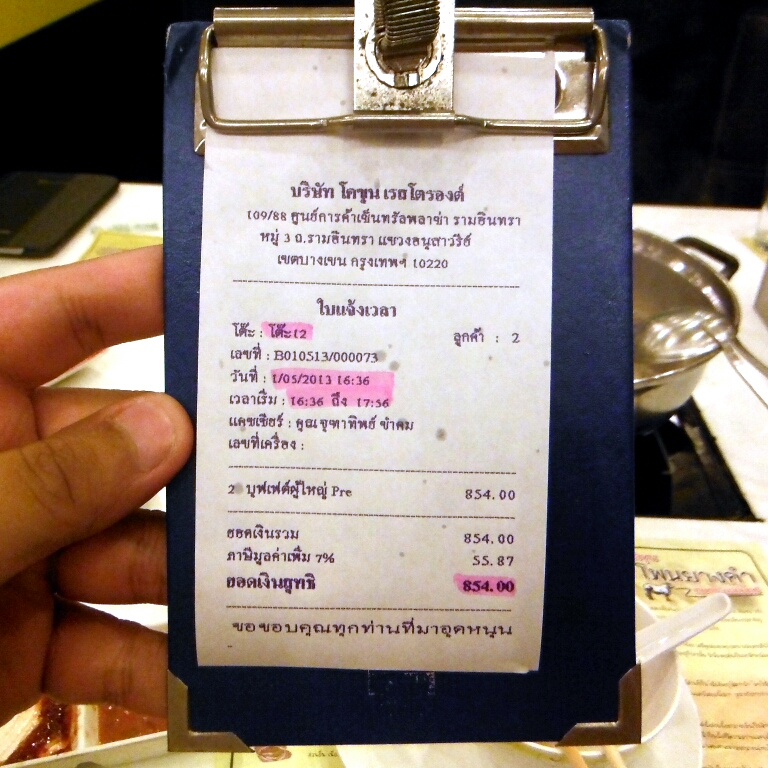 บริษัท โคขุน เรสโตรองต์
109/88 ศูนย์การค้าเซ็นทรัลพลาซ่า รามอินทรา
หมู่ 3 ถ.รามอินทรา แขวงอนุสาวรีย์
เขตบางเขน กรุงเทพฯ 10220
ใบแจ้งเวลา
โต๊ะ : โต๊ะ12 ลูกค้า : 2
เลขที่ : B010513/000073
วันที่ : 1/05/2013 16:36
เวลาเริ่ม : 16:36 ถึง 17:56
แคชเชียร์ : คุณ จุฑาทิพย์ ขำคม
เลขที่เครื่อง :
2 บุฟเฟต์ผู้ใหญ่ Pre 854.00
ยอดเงินรวม 854.00
ภาษีมูลค่าเพิ่ม 7% 55.87
ยอดเงินสุทธิ 854.00
ขอขอบคุณทุกท่านที่มาอุดหนุน
โพนยางคำ